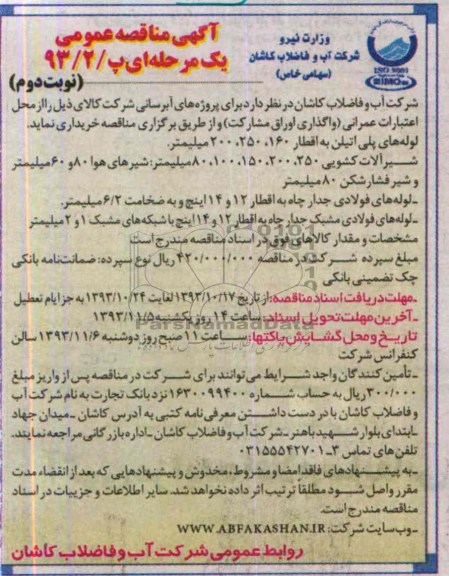 وزارت نیرو
شرکت آب و فاضلاب کاشان
(سهامی خاص)
ISO 9001
آگهی مناقصه عمومی
یک مرحله‌ای پ/۹۳/۲
(نوبت دوم)
شرکت آب و فاضلاب کاشان در نظر دارد برای پروژه‌های آبرسانی شرکت کالای ذیل را از محل
اعتبارات عمرانی (واگذاری اوراق مشارکت) و از طریق برگزاری مناقصه خریداری نماید.
لوله‌های پلی اتیلن به اقطار ۱۶۰، ۲۵۰، ۲۰۰ میلیمتر.
شیرآلات کشویی ۲۵۰، ۲۰۰، ۱۵۰، ۱۰۰، ۸۰ میلیمتر: شیرهای هوا ۸۰ و ۶۰ میلیمتر
و شیر فشارشکن ۸۰ میلیمتر
ـ لوله‌های فولادی جدار چاه به اقطار ۱۲ و ۱۴ اینچ و به ضخامت ۶/۲ میلیمتر.
ـ لوله‌های فولادی مشبک جدار چاه به اقطار ۱۲ و ۱۴ اینچ با شبکه‌های مشبک ۱ و ۲ میلیمتر
مشخصات و مقدار کالاهای فوق در اسناد مناقصه مندرج است
مبلغ سپرده شرکت در مناقصه ۴۲۰/۰۰۰/۰۰۰ ریال نوع سپرده: ضمانت‌نامه بانکی
چک تضمینی بانکی
ـ مهلت دریافت اسناد مناقصه: از تاریخ ۱۳۹۳/۱۰/۱۷ لغایت ۱۳۹۳/۱۰/۲۴ به جز ایام تعطیل
ـ آخرین مهلت تحویل اسناد: ساعت ۱۴ روز یکشنبه ۱۳۹۳/۱۱/۵
تاریخ و محل گشایش پاکتها: ساعت ۱۱ صبح روز دوشنبه ۱۳۹۳/۱۱/۶ سالن
کنفرانس شرکت
ـ تأمین کنندگان واجد شرایط می‌توانند برای شرکت در مناقصه پس از واریز مبلغ
۳۰۰/۰۰۰ ریال به حساب شماره ۱۶۳۰۰۹۹۴۰۰ نزد بانک تجارت به نام شرکت آب
و فاضلاب کاشان با در دست داشتن معرفی نامه کتبی به آدرس کاشان ـ میدان جهاد
ـ ابتدای بلوار شهید باهنر ـ شرکت آب و فاضلاب کاشان ـ اداره بازرگانی مراجعه نمایند.
تلفن‌های تماس ۳ـ۰۳۱۵۵۵۴۲۷۰۱
ـ به پیشنهادهای فاقد امضا و مشروط، مخدوش و پیشنهادهایی که بعد از انقضاء مدت
مقرر واصل شود مطلقاً ترتیب اثر داده نخواهد شد. سایر اطلاعات و جزییات در اسناد
مناقصه مندرج است.
ـ وب‌سایت شرکت: WWW.ABFAKASHAN.IR
روابط عمومی شرکت آب و فاضلاب کاشان
ParsNamadData